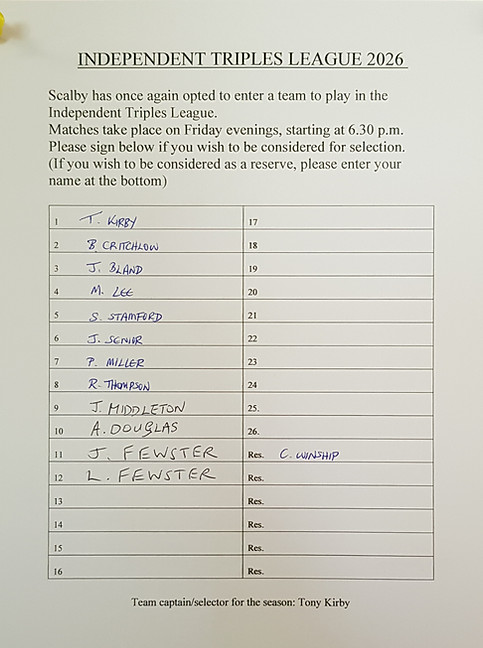 INDEPENDENT TRIPLES LEAGUE 2026
Scalby has once again opted to enter a team to play in the
Independent Triples League.
Matches take place on Friday evenings, starting at 6.30 p.m.
Please sign below if you wish to be considered for selection.
(If you wish to be considered as a reserve, please enter your
name at the bottom)
1 T. KIRBY 17
2 B CRITCHLOW 18
3 J. BLAND 19
4 M. LEE 20
5 S. STAMFORD 21
6 J. SENIOR 22
7 P. MILLER 23
8 R. THOMPSON 24
9 J. MIDDLETON 25.
10 A. DOUGLAS 26.
11 J. FEWSTER Res. C. WINSHIP
12 L. FEWSTER Res.
13 Res.
14 Res.
15 Res.
16 Res.
Team captain/selector for the season: Tony Kirby